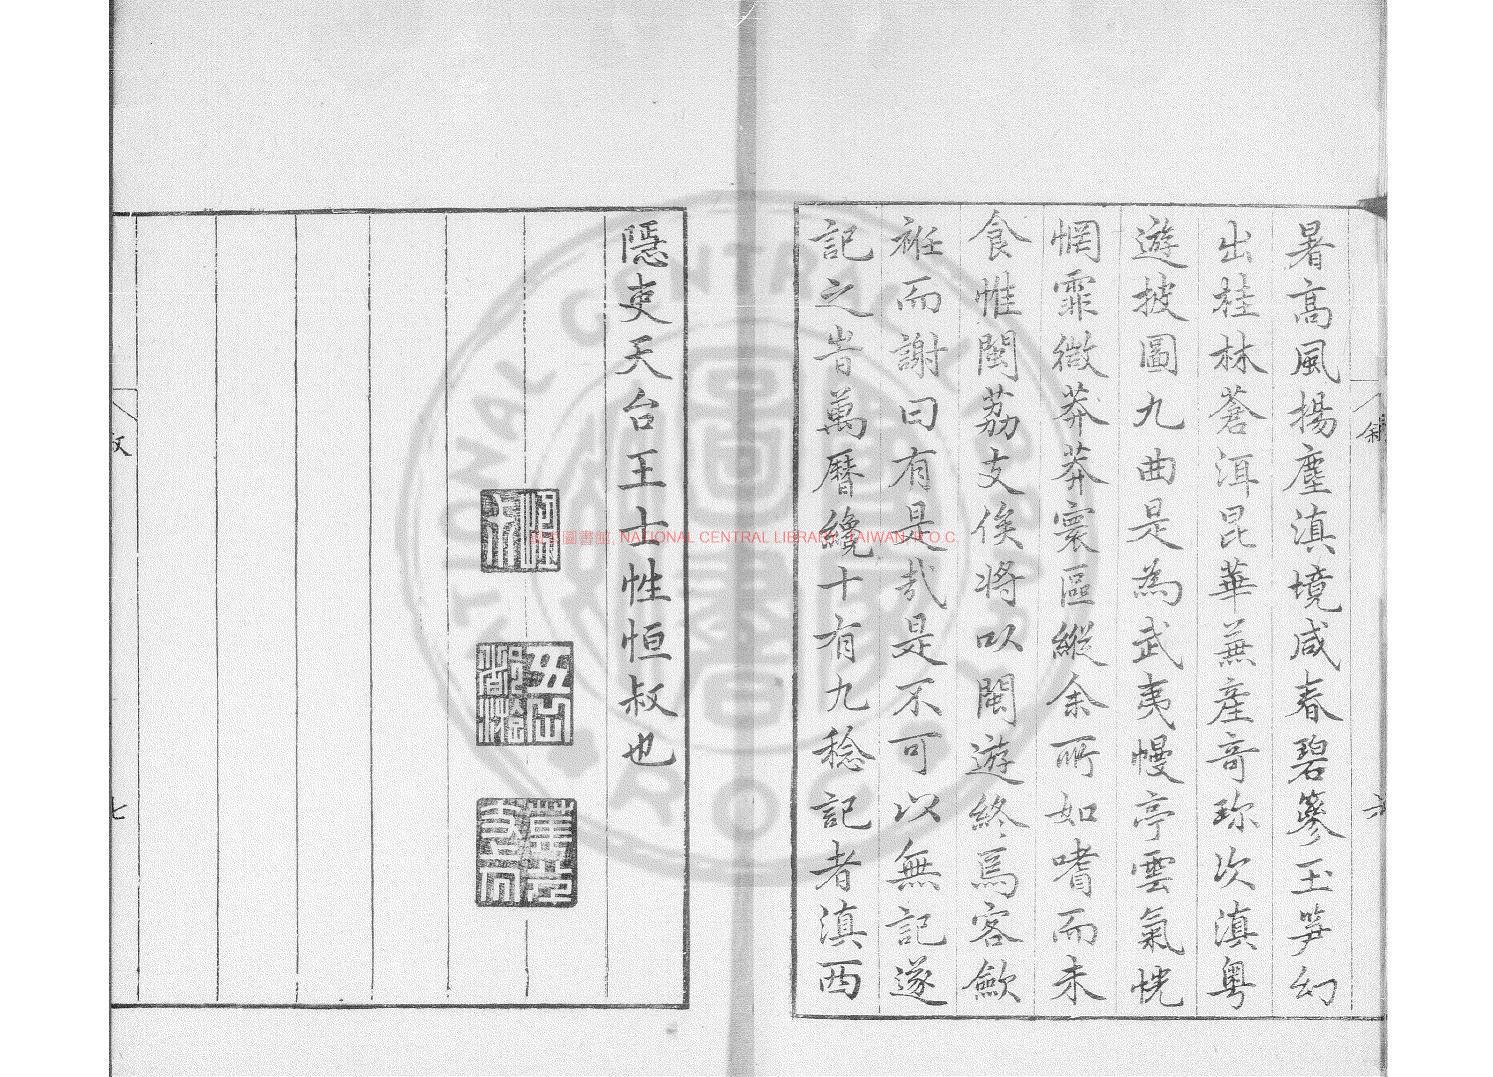 暑高風揚塵滇境咸春碧篸玉笋幻
出桂林蒼洱昆華蕪產奇珎次滇粤
遊披圖九曲是為武夷幔亭雲氣恍
惘霏微莽莽寰區縱余所如嗜而未
食惟閩荔支俟將以閩遊終焉客歛
袵而謝曰有是㢤是不可以無記遂
記之旹萬曆纔十有九稔記者滇西
隱吏天台王士性恒叔也
敘
六
七
國家圖書館, NATIONAL CENTRAL LIBRARY, TAIWAN, R.O.C.